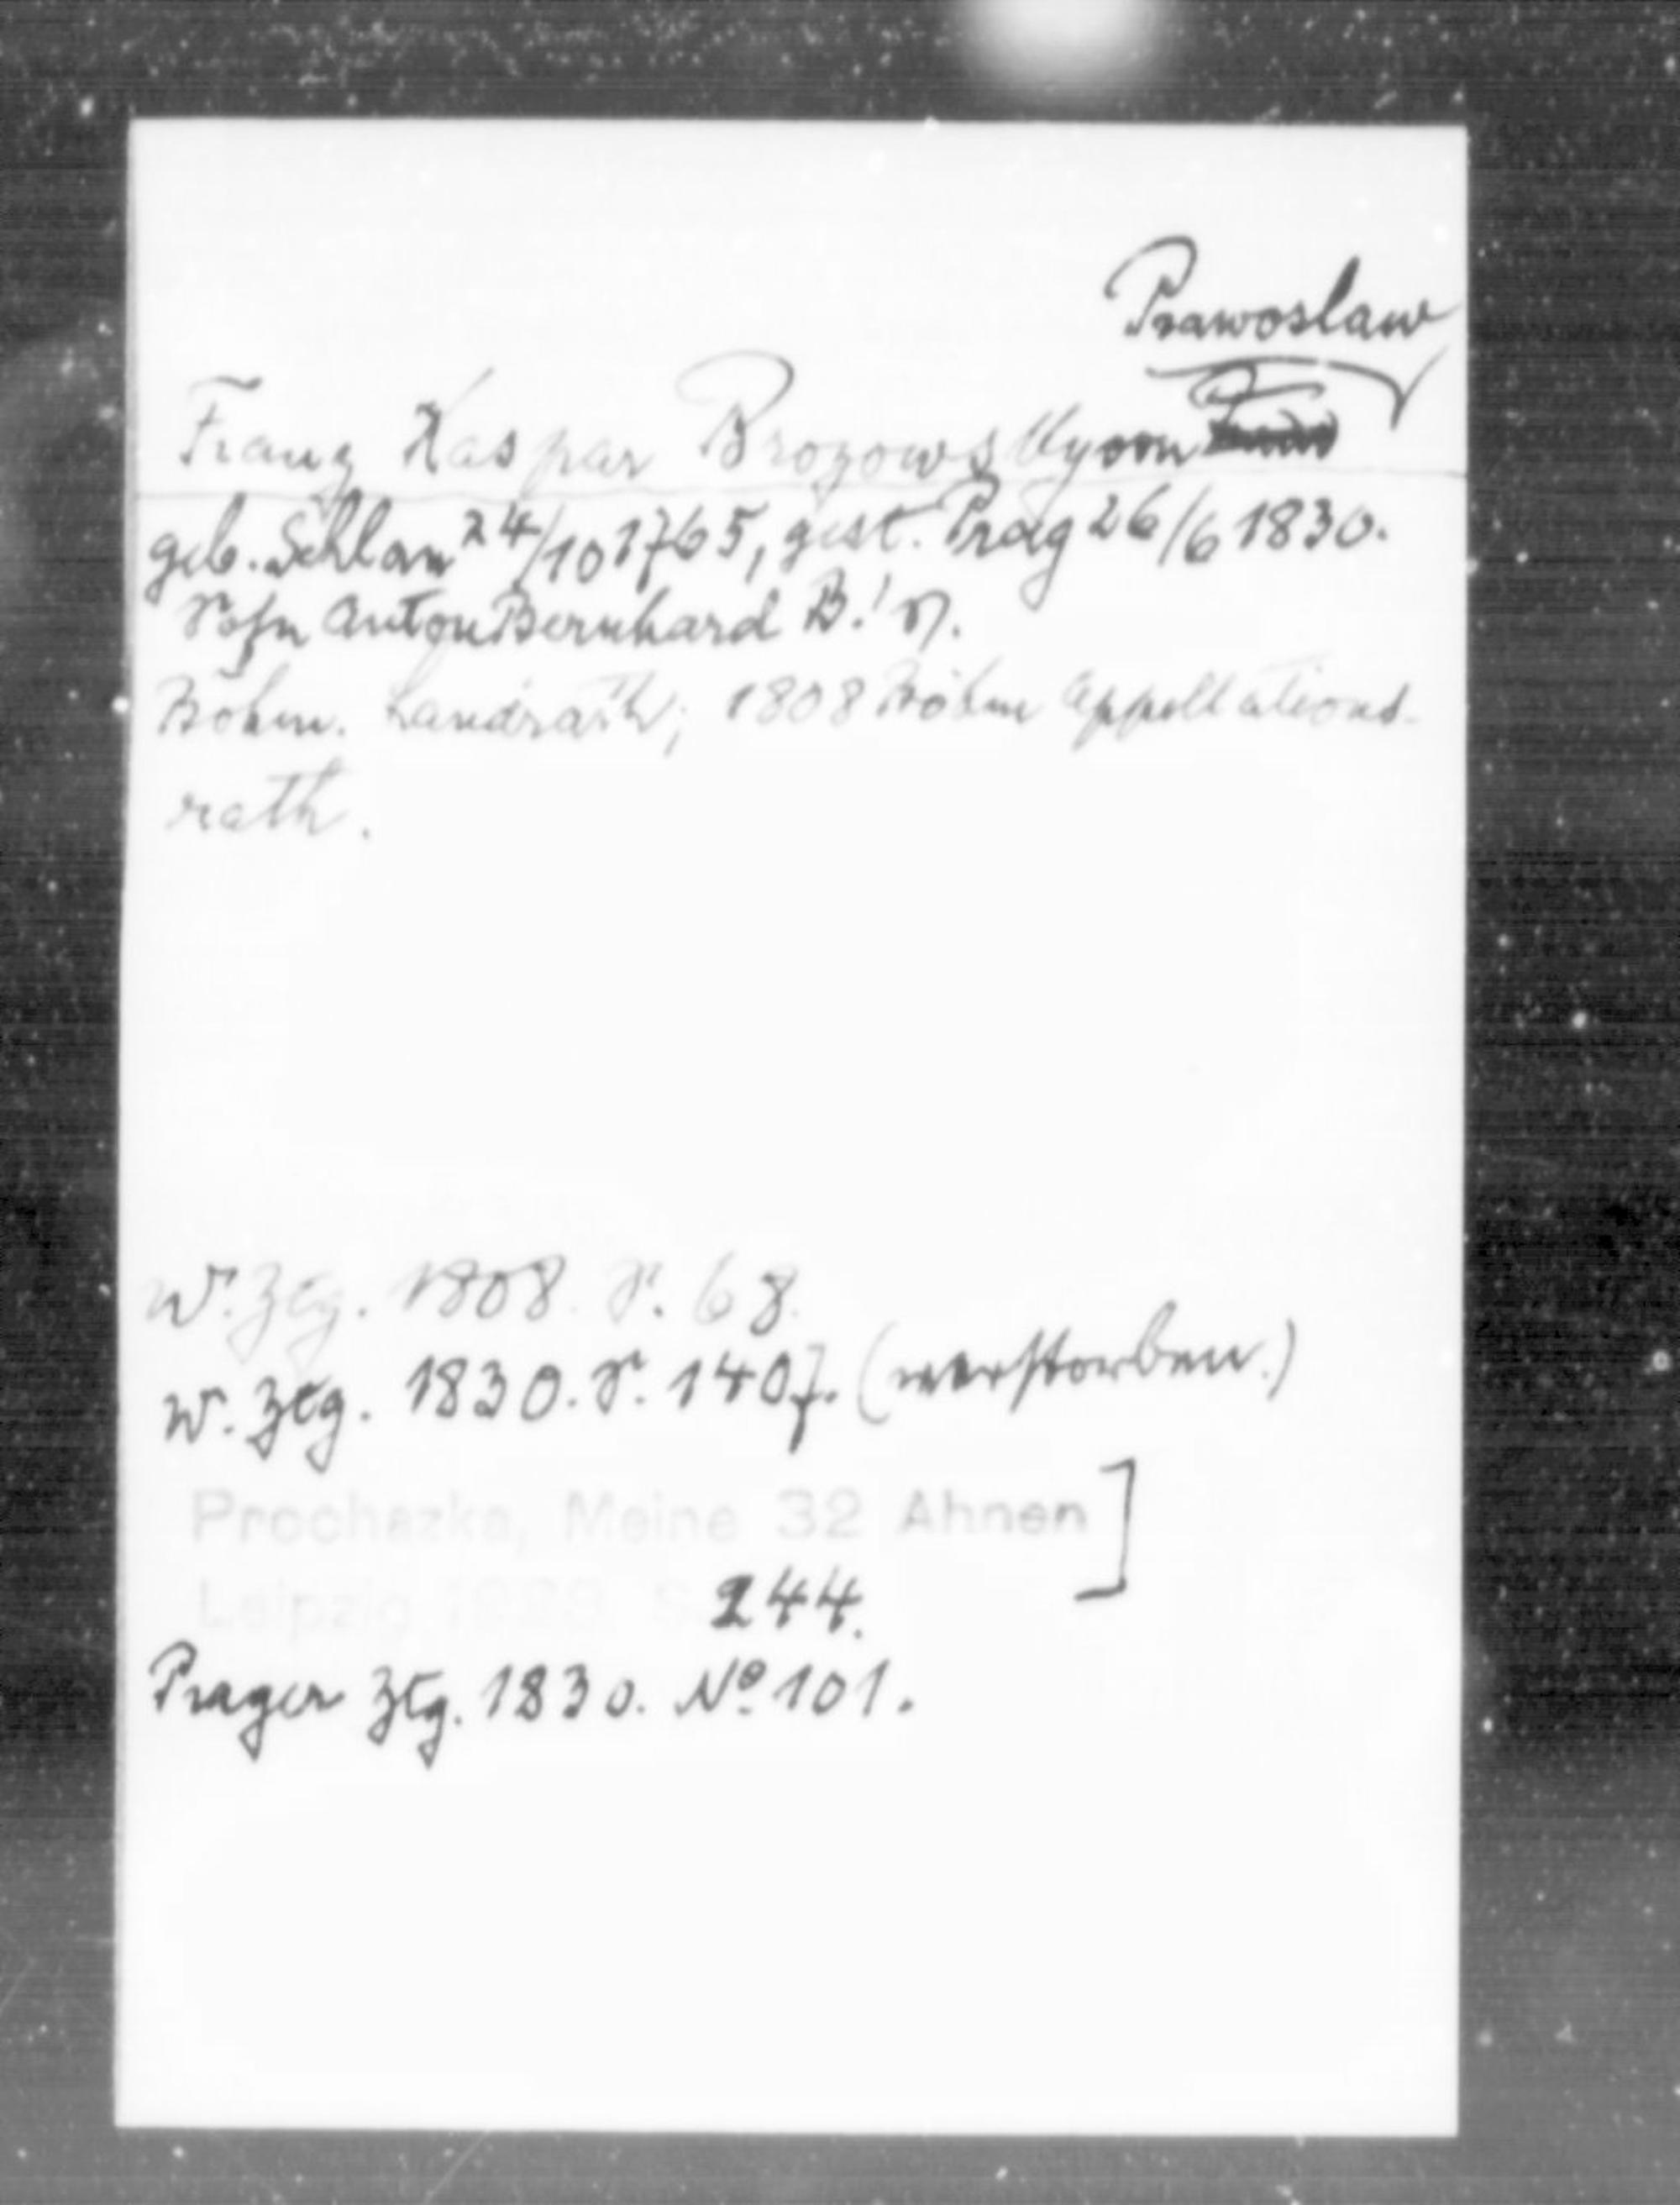 Prawoslaw
Franz Kaspar Brozowsky von
geb. Schlan 24/10 1765, gest. Prag 26/6 1830.
Sohn Anton Bernhard B.'s.
Böhm. Landrath; 1808 Böhm Appellations-
rath.
W. Ztg. 1808. S. 68.
W. Ztg. 1830. S. 1407. (verstorben.)
Prochazka, Meine 32 Ahnen]
Leipzig 1928 S. 244.
Prager Ztg. 1830. No. 101.